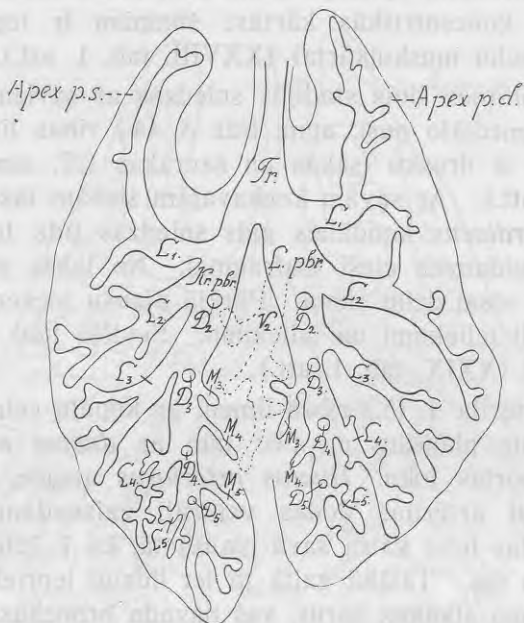 Apex p.s.
Apex p.d.
Tr.
L₁.
L₁
Kr. pbr.
L. pbr.
L₂
L₂
D₂
V₂
D₂
L₃
L₃
D₃
M₃
D₃
M₃
M₄
D₄
L₄
L₄
D₄
M₄
M₅
D₅
D₅
L₅
L₅